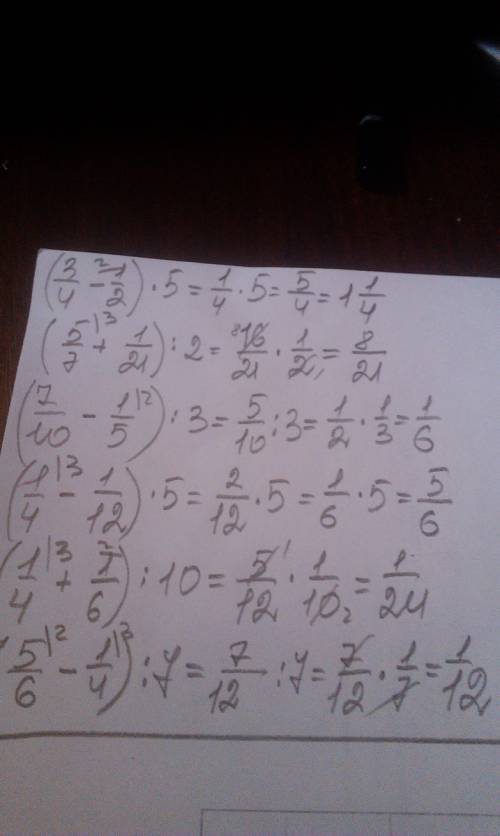 (3/4 - ²1/2) · 5 = 1/4 · 5 = 5/4 = 1 1/4
(5/7|3 + 1/21) : 2 = ⁸16/21 · 1/2₁ = 8/21
(7/10 - 1/5|2) : 3 = 5/10 : 3 = 1/2 · 1/3 = 1/6
(1/4|3 - 1/12) · 5 = 2/12 · 5 = 1/6 · 5 = 5/6
(1/4|3 + ²1/6) : 10 = 5¹/12 · 1/10₂ = 1/24
(5/6|2 - 1/4|3) : 7 = 7/12 : 7 = 7/12 · 1/7 = 1/12